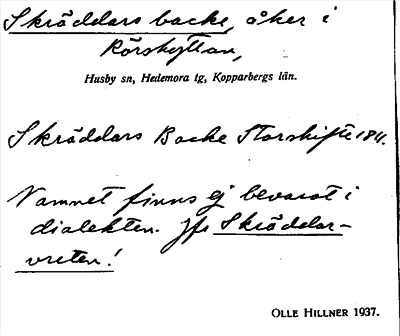 Skräddars backe, åker i
Rörshyttan,
Husby sn, Hedemora tg, Kopparbergs län.
Skräddars Backe Storskifte 1811.
Namnet finns ej bevarat i
dialekten. Jfr Skräddar-
vreten!
OLLE HILLNER 1937.